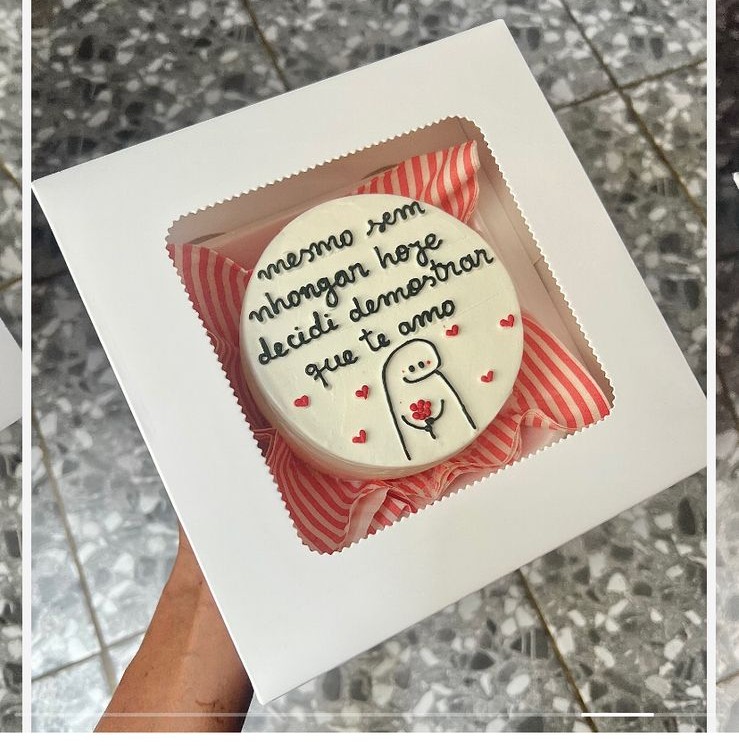 mesmo sem
nhongar hoje
decidi demostrar
que te amo